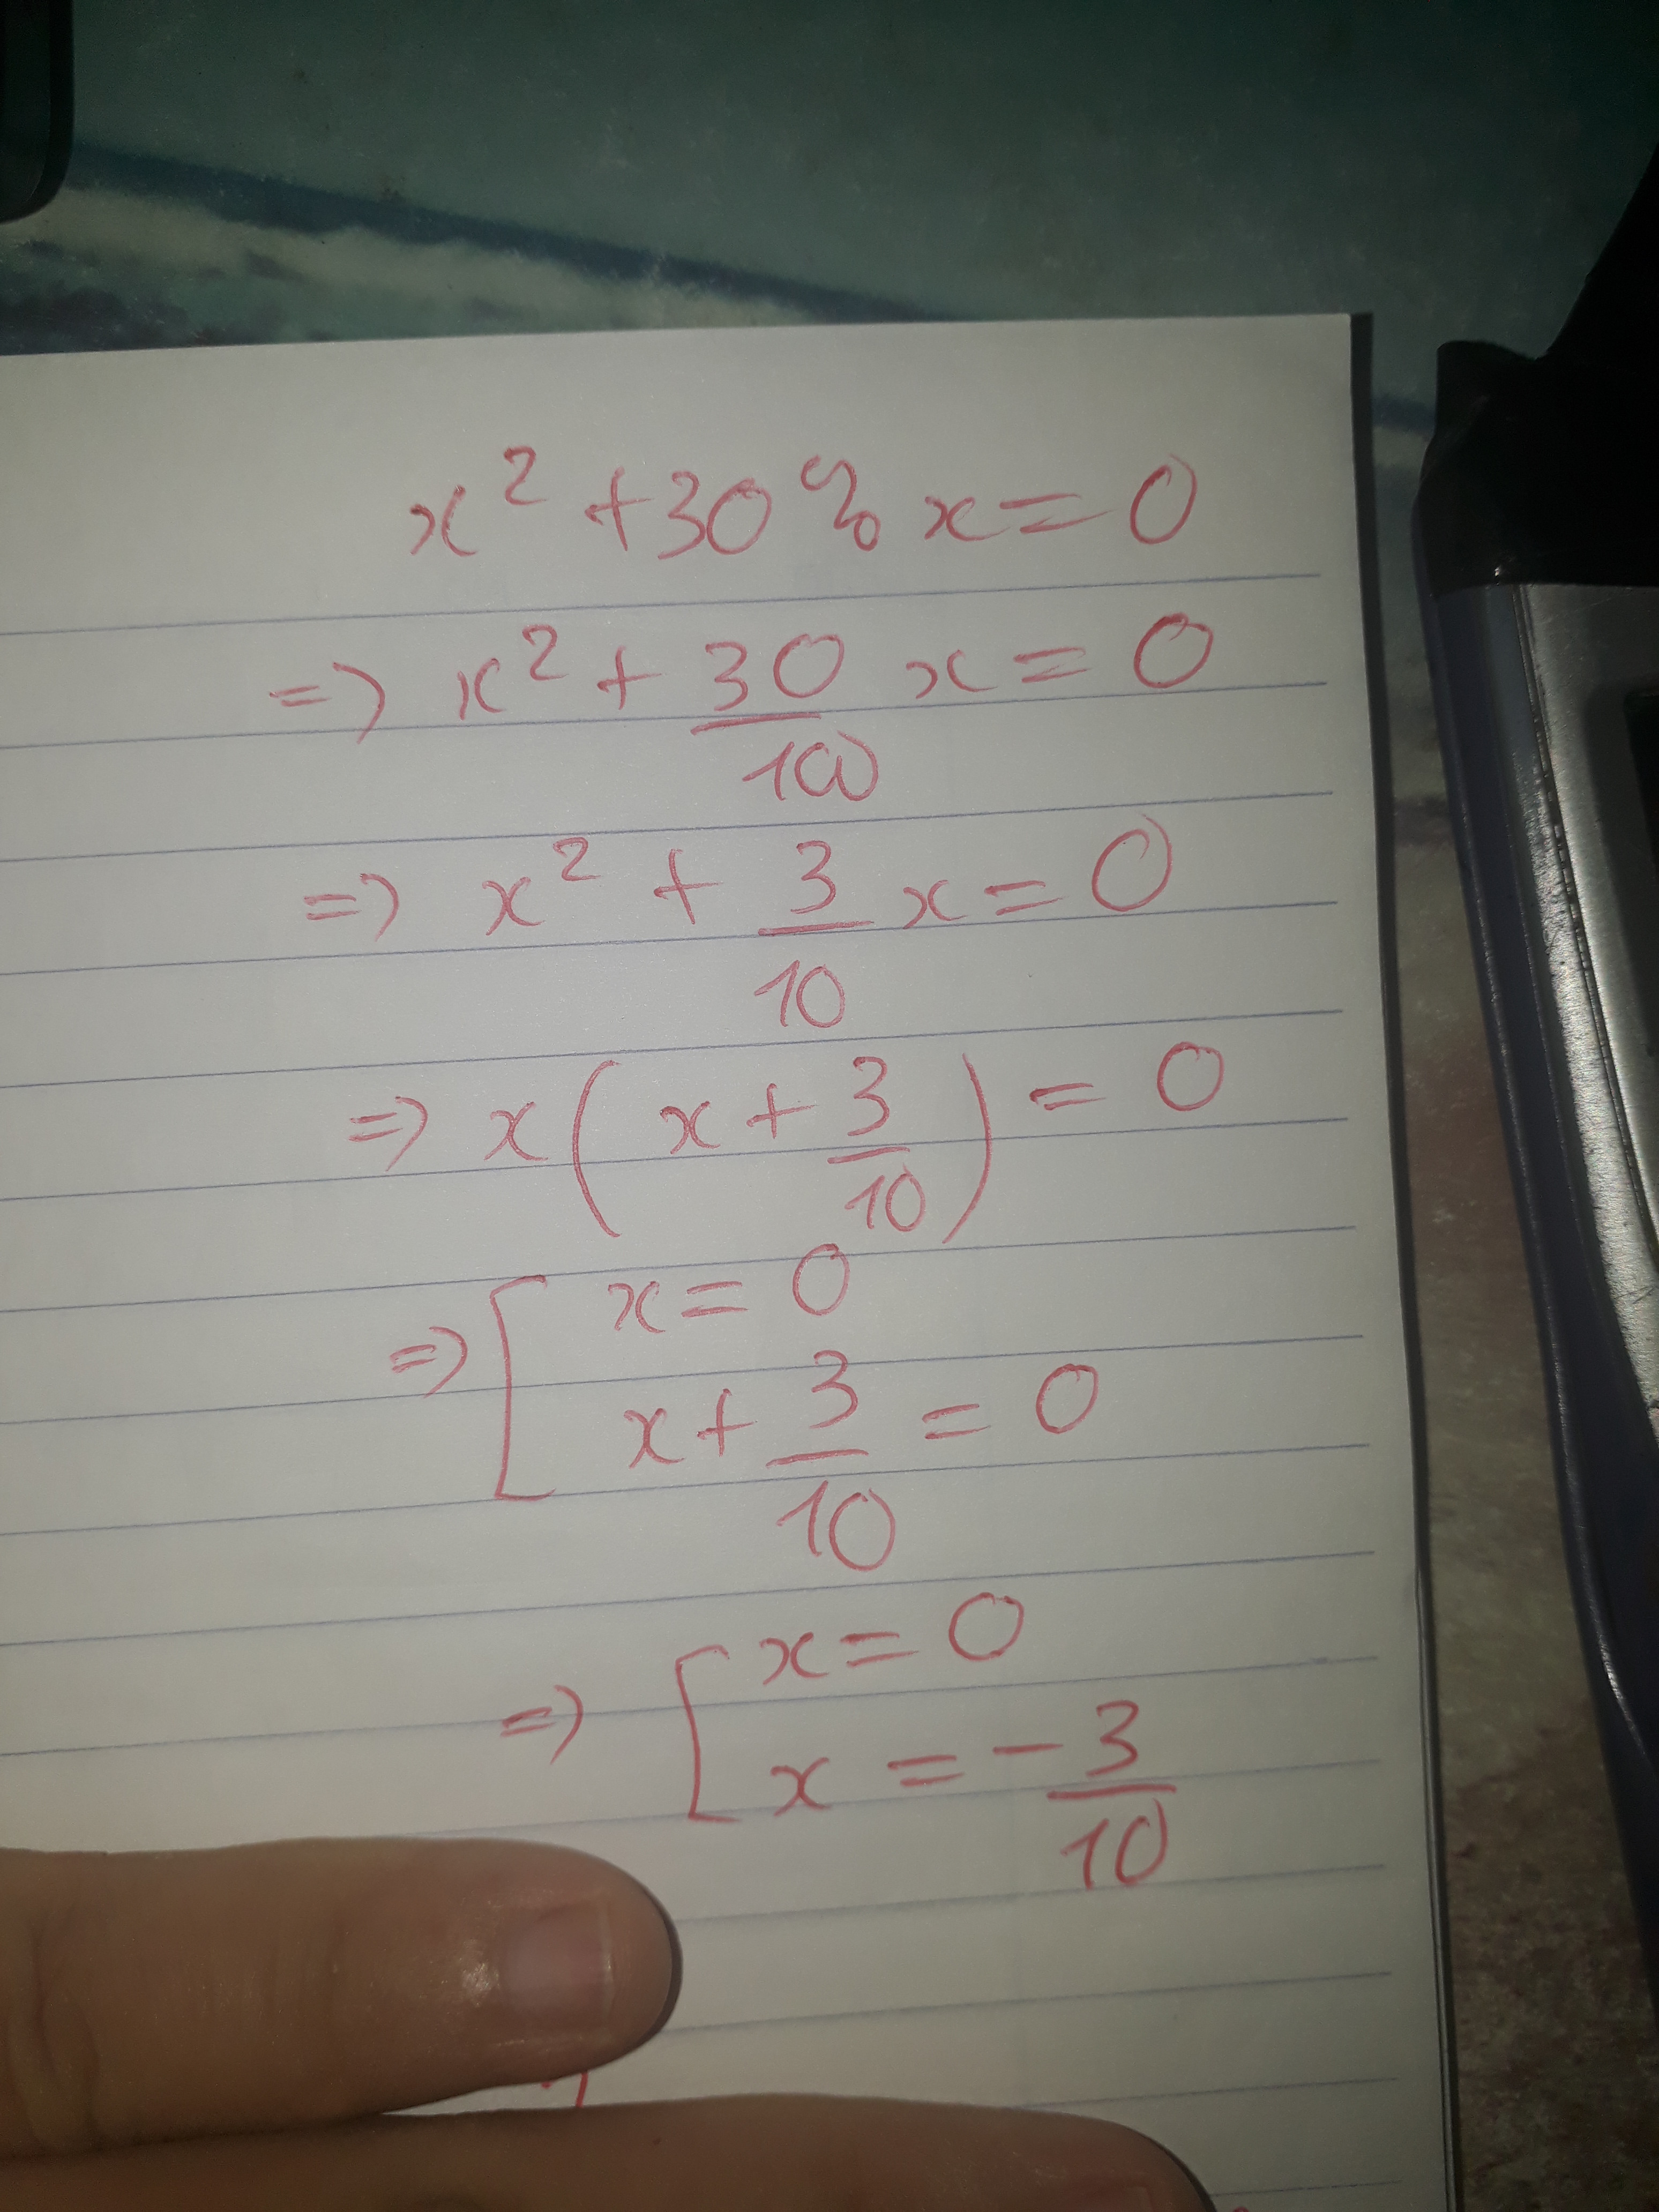 x² + 30% x = 0
=> x² + 30/100 x = 0
=> x² + 3/10 x = 0
=> x(x + 3/10) = 0
=> [ x = 0
x + 3/10 = 0
=> [ x = 0
x = -3/10